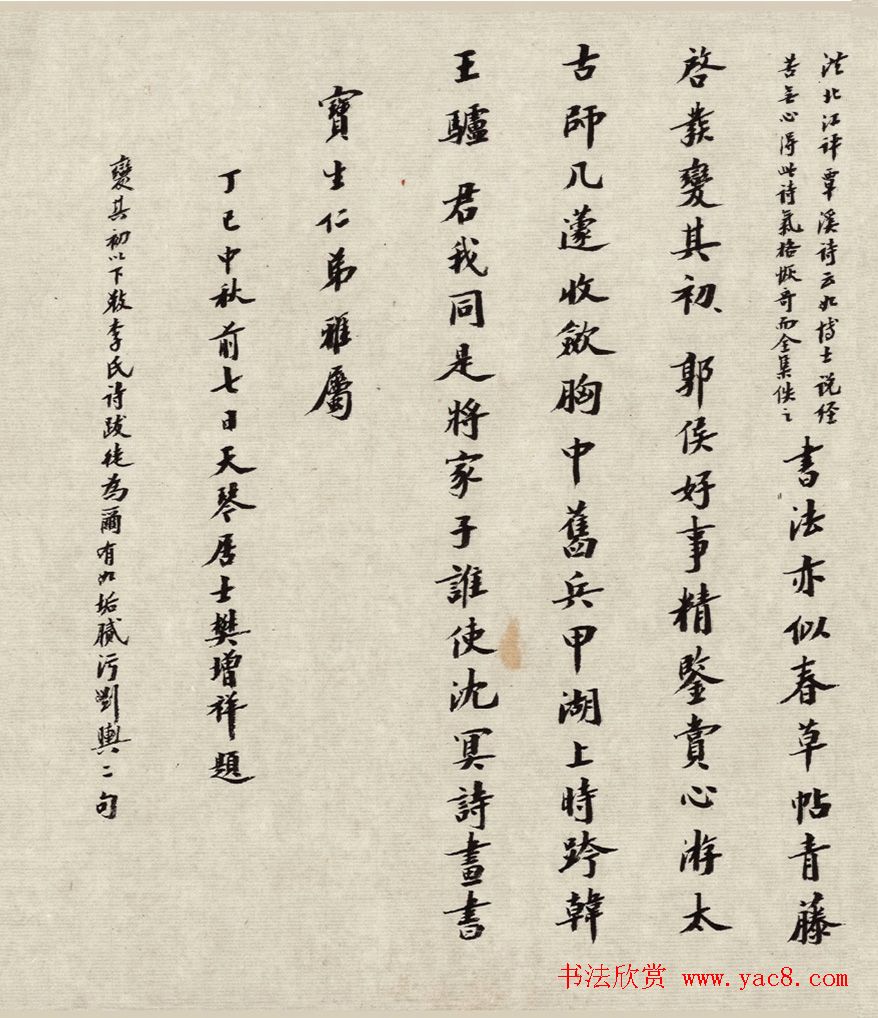 洪北江評覃溪詩云如博士說經
苦無心得此詩氣格恢奇而全集佚之
書法亦似春草帖青藤
啓發變其初郭侯好事精鑒賞心游太
古師几蘧收斂胸中舊兵甲湖上時跨韓
王驢君我同是將家子誰使沈冥詩畫書
寶生仁弟雅屬
丁巳中秋前七日天琴居士樊增祥題
變其初以下敚李氏詩跋徒為爾有如垢膩污劉輿二句
书法欣赏 www.yac8.com